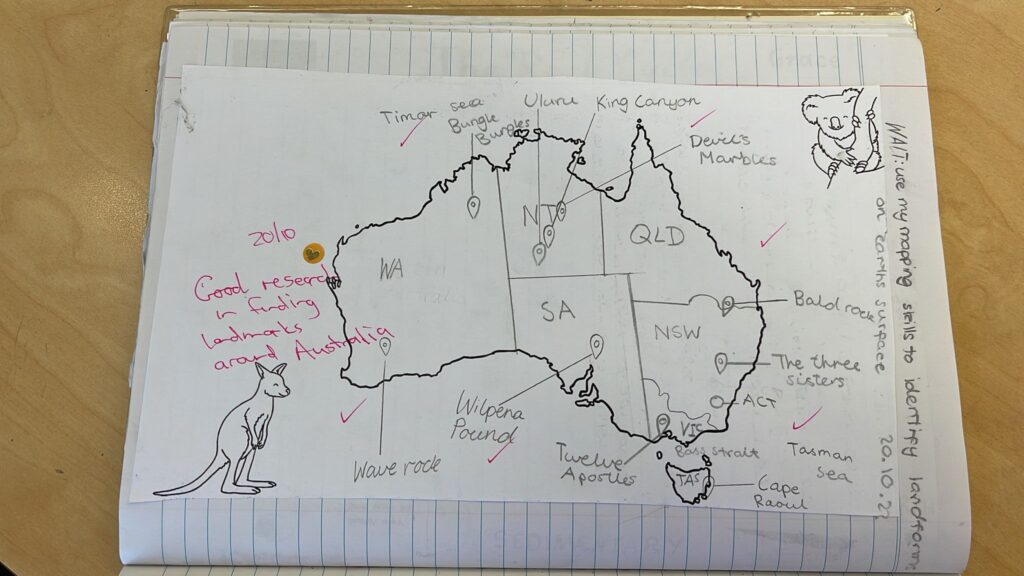 Timor sea
Bungle
Bungles
Uluru
King Canyon
Devil's
Marbles
NT
QLD
WA
SA
NSW
Bald rock
The three
sisters
ACT
VIC
Bass strait
TAS
Tasman
sea
Cape
Raoul
Twelve
Apostles
Wilpena
Pound
Wave rock
20/10
Good research
in finding
landmarks
around Australia
WALT: use my mapping skills to identify landforms
on earths surface